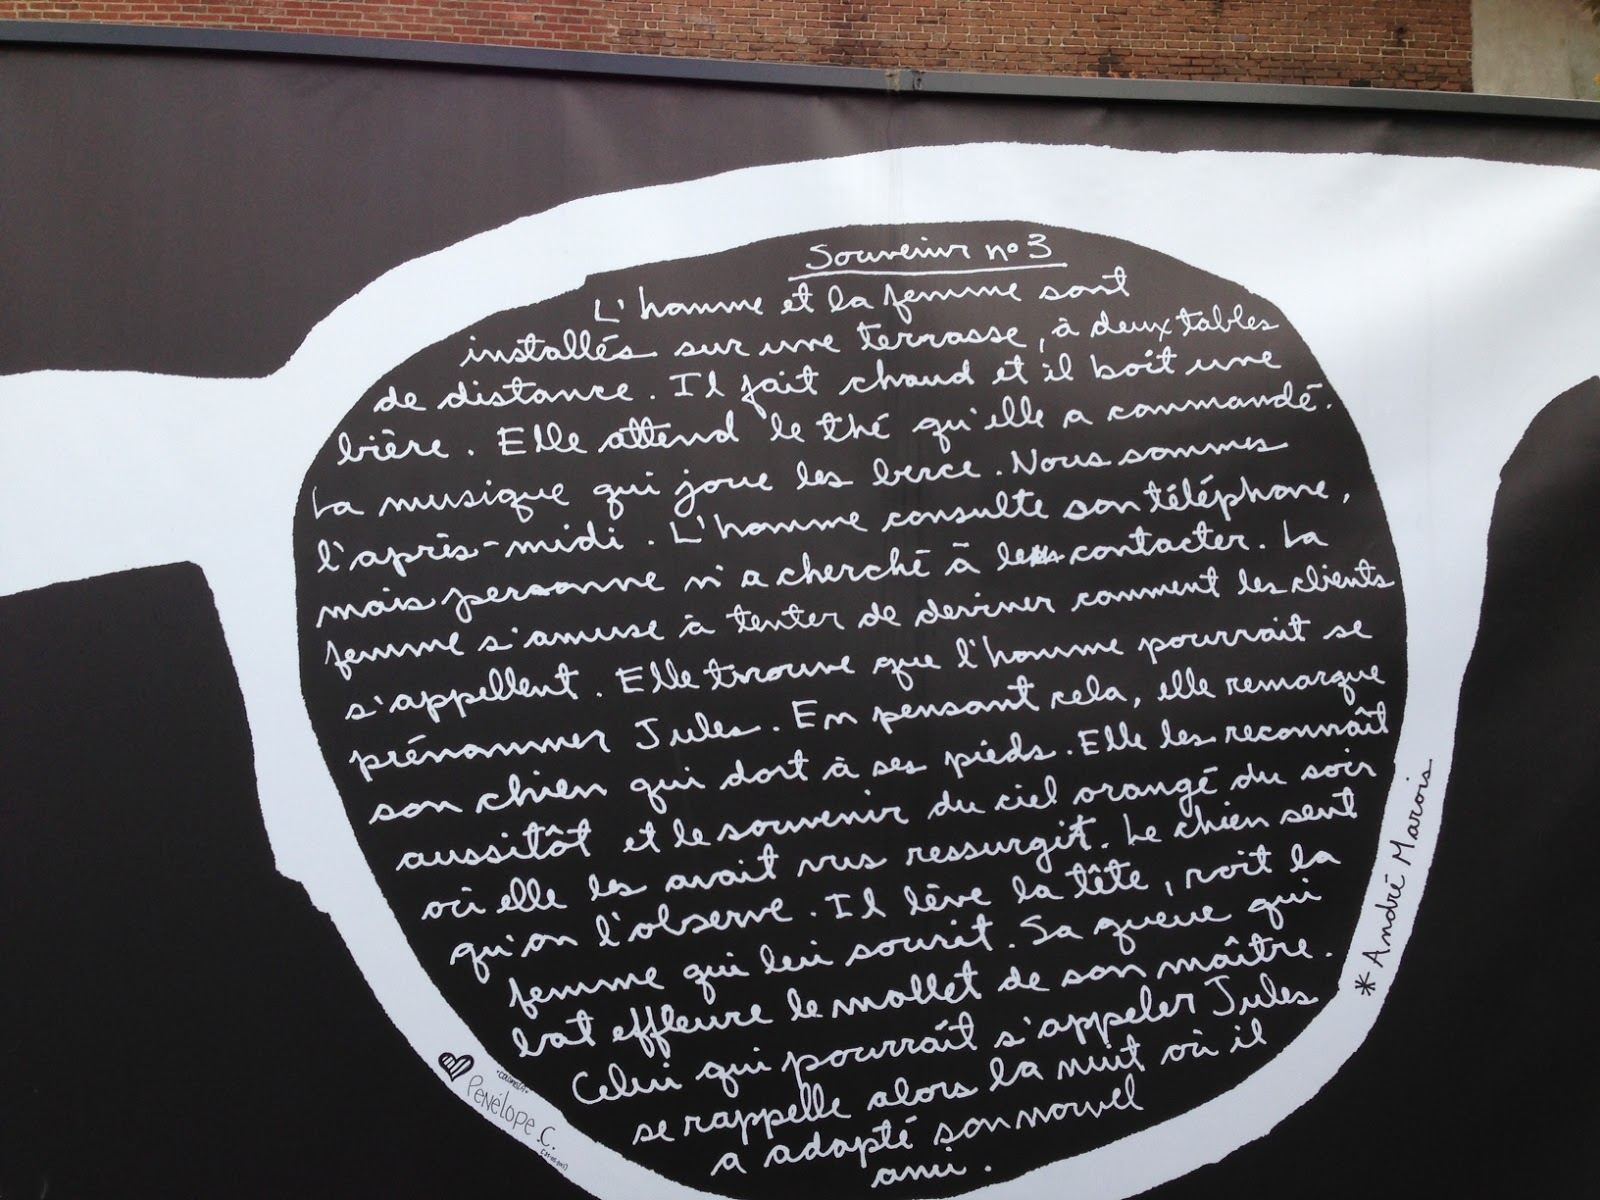 Souvenir no 3
L'homme et la femme sont
installés sur une terrasse, à deux tables
de distance. Il fait chaud et il boit une
bière. Elle attend le thé qu'elle a commandé.
La musique qui joue les berce. Nous sommes
l'après-midi. L'homme consulte son téléphone,
mais personne n'a cherché à le contacter. La
femme s'amuse à tenter de deviner comment les clients
s'appellent. Elle trouve que l'homme pourrait se
prénommer Jules. En pensant cela, elle remarque
son chien qui dort à ses pieds. Elle les reconnaît
aussitôt et le souvenir du ciel orangé du soir
où elle les avait vus ressurgit. Le chien sent
qu'on l'observe. Il lève la tête, voit la
femme qui lui sourit. Sa queue qui
bat effleure le mollet de son maître.
Celui qui pourraît s'appeler Jules
se rappelle alors la nuit où il
a adapté son nouvel
ami.
* André Marois
Penélope.C.